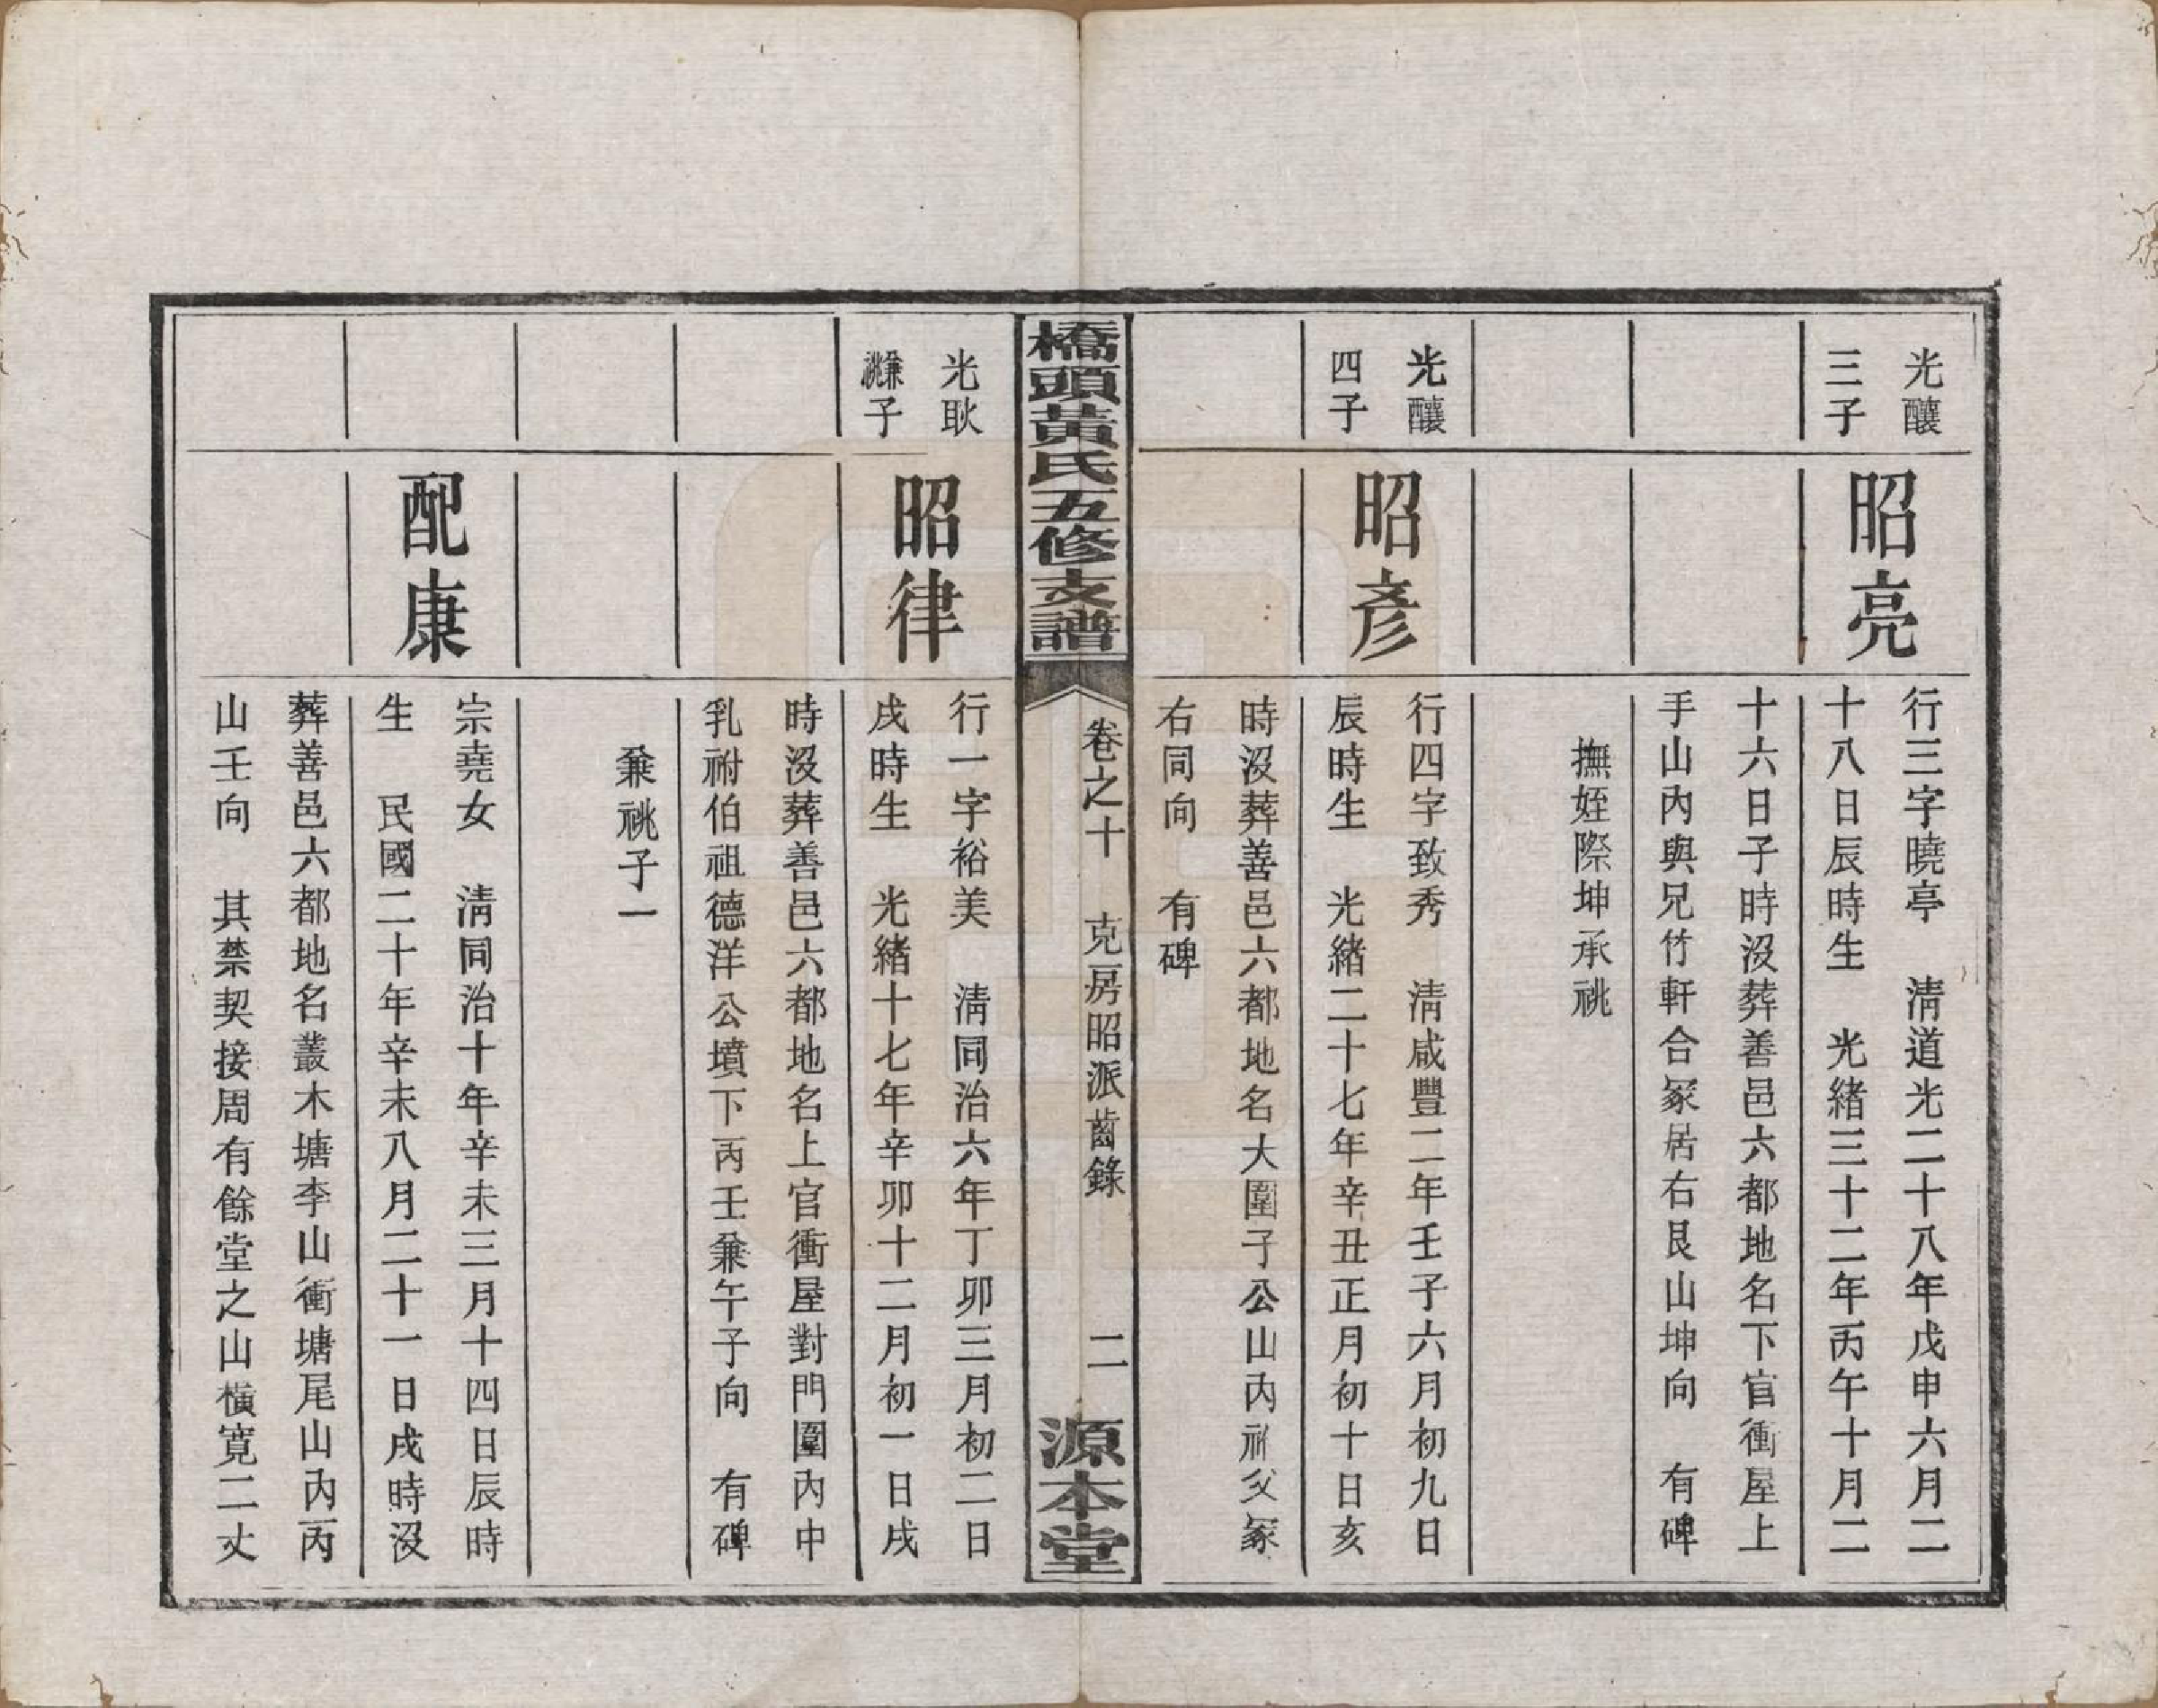 光釀
三子
昭亮
行三字曉亭　清道光二十八年戊申六月二
十八日辰時生　光緒三十二年丙午十月二
十六日子時沒葬善邑六都地名下官衝屋上
手山內與兄竹軒合冢居右艮山坤向　有碑
撫姪際坤承祧
光釀
四子
昭彥
行四字致秀　清咸豐二年壬子六月初九日
辰時生　光緒二十七年辛丑正月初十日亥
時沒葬善邑六都地名大圍子公山內祔父冢
右同向　有碑
橋頭黃氏五修支譜
卷之十　克房昭派齒錄
二
源本堂
光耿
兼祧子
昭律
行一字裕美　清同治六年丁卯三月初二日
戌時生　光緒十七年辛卯十二月初一日戌
時沒葬善邑六都地名上官衝屋對門圍內中
乳祔伯祖德洋公墳下丙壬兼午子向　有碑
兼祧子一
配康
宗堯女　清同治十年辛未三月十四日辰時
生　民國二十年辛未八月二十一日戌時沒
葬善邑六都地名叢木塘李山衝塘尾山內丙
山壬向　其禁契接周有餘堂之山橫寬二丈